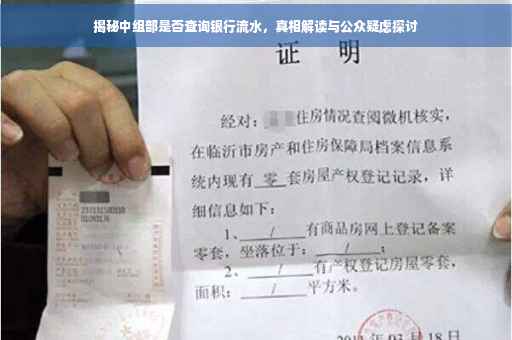 揭秘中组部是否查询银行流水，真相解读与公众疑虑探讨
证 明
经对：住房情况查阅微机核实，
在临沂市房产和住房保障局档案信息系
统内现有 零 套房屋产权登记记录，详
细信息如下：
1、 / 有商品房网上登记备案
零套，坐落位于： / ；
2、 / 有产权登记房屋零套，
面积： / 平方米。
月 18 日